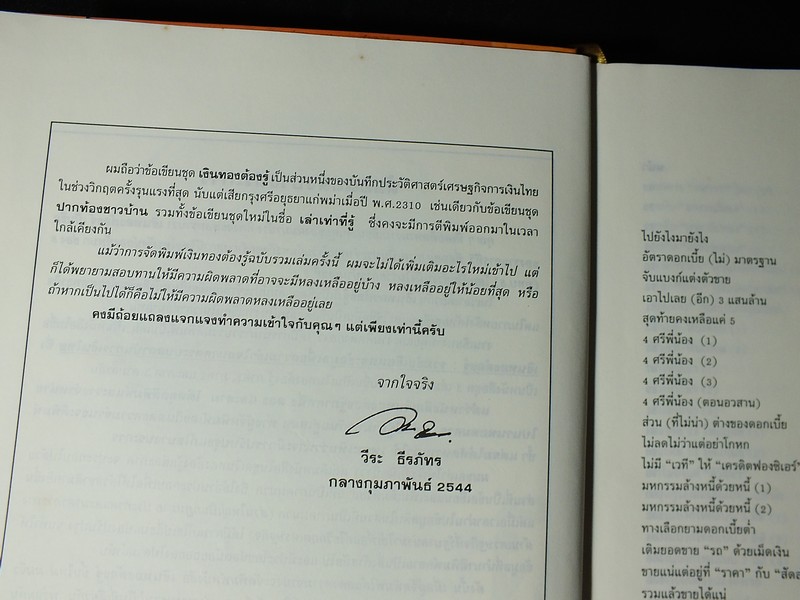 ผมถือว่าข้อเขียนชุด เงินทองต้องรู้ เป็นส่วนหนึ่งของบันทึกประวัติศาสตร์เศรษฐกิจการเงินไทย
ในช่วงวิกฤตครั้งรุนแรงที่สุด นับแต่เสียกรุงศรีอยุธยาแก่พม่าเมื่อปี พ.ศ.2310 เช่นเดียวกับข้อเขียนชุด
ปากท้องชาวบ้าน รวมทั้งข้อเขียนชุดใหม่ในชื่อ เล่าเท่าที่รู้ ซึ่งคงจะมีการตีพิมพ์ออกมาในเวลา
ใกล้เคียงกัน
แม้ว่าการจัดพิมพ์เงินทองต้องรู้ฉบับรวมเล่มครั้งนี้ ผมจะไม่ได้เพิ่มเติมอะไรใหม่เข้าไป แต่
ก็ได้พยายามสอบทานให้มีความผิดพลาดที่อาจจะมีหลงเหลืออยู่บ้าง หลงเหลืออยู่ให้น้อยที่สุด หรือ
ถ้าหากเป็นไปได้ก็คือไม่ให้มีความผิดพลาดหลงเหลืออยู่เลย
คงมีถ้อยแถลงแจกแจงทำความเข้าใจกับคุณๆ แต่เพียงเท่านี้ครับ
จากใจจริง
วีระ ธีรภัทร
กลางกุมภาพันธ์ 2544
ไปยังไงมายังไง
อัตราดอกเบี้ย (ไม่) มาตรฐาน
จับแบงก์แต่งตัวขาย
เอาไปเลย (อีก) 3 แสนล้าน
สุดท้ายคงเหลือแค่ 5
4 ศรีพี่น้อง (1)
4 ศรีพี่น้อง (2)
4 ศรีพี่น้อง (3)
4 ศรีพี่น้อง (ตอนอวสาน)
ส่วน (ที่ไม่น่า) ต่างของดอกเบี้ย
ไม่ลดไม่ว่าแต่อย่าโกหก
ไม่มี “เวที” ให้ “เครดิตฟองซิเอร์”
มหกรรมล้างหนี้ด้วยหนี้ (1)
มหกรรมล้างหนี้ด้วยหนี้ (2)
ทางเลือกยามดอกเบี้ยต่ำ
เติมยอดขาย “รถ” ด้วยเม็ดเงิน
ขายแน่แต่อยู่ที่ “ราคา” กับ
รวมแล้วขายได้แน่